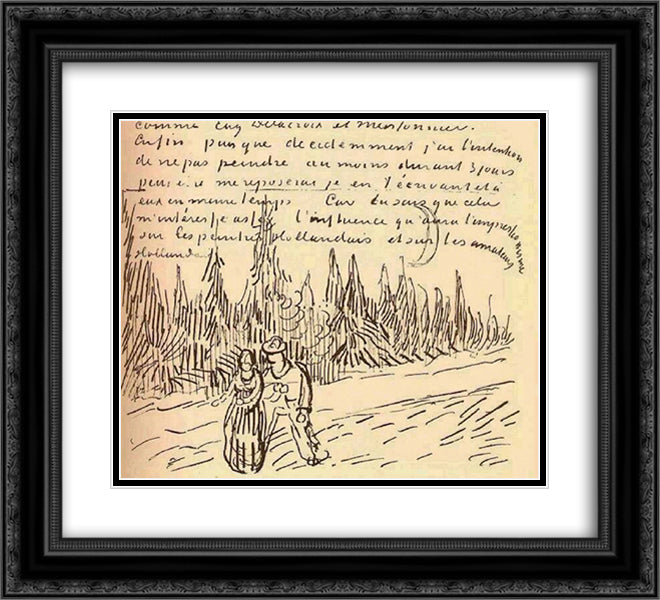 comme Eug Delacroix et Meissonier.
Enfin puisque decidemment j'ai l'intention
de ne pas peindre au moins durant 3 jours
peut etre me reposerai je en t'écrivant et à
eux en meme temps Car tu sais que cela
m'intéresse assez l'influence qu'aura l'impressionisme
sur les peintres Hollandais et sur les amateurs
Hollandais